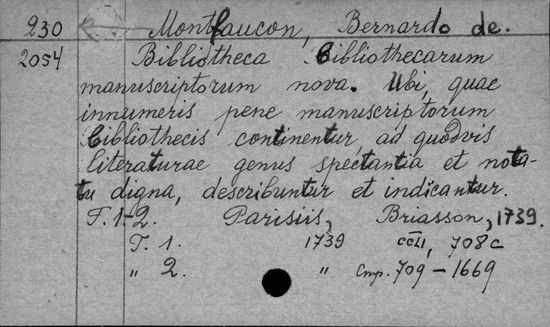 230 Montfaucon, Bernardo de.
2054 Bibliotheca bibliothecarum
manuscriptorum nova. Ubi, quae
innumeris pene manuscriptorum
bibliothecis continentur, ad quodvis
literaturae genus spectantia et nota-
tu digna, describuntur et indicantur.
T. 1-2. Parisiis, Briasson, 1739.
T. 1. 1739 ccLI, 708 c
„ 2. „ Cmp. 709 – 1669